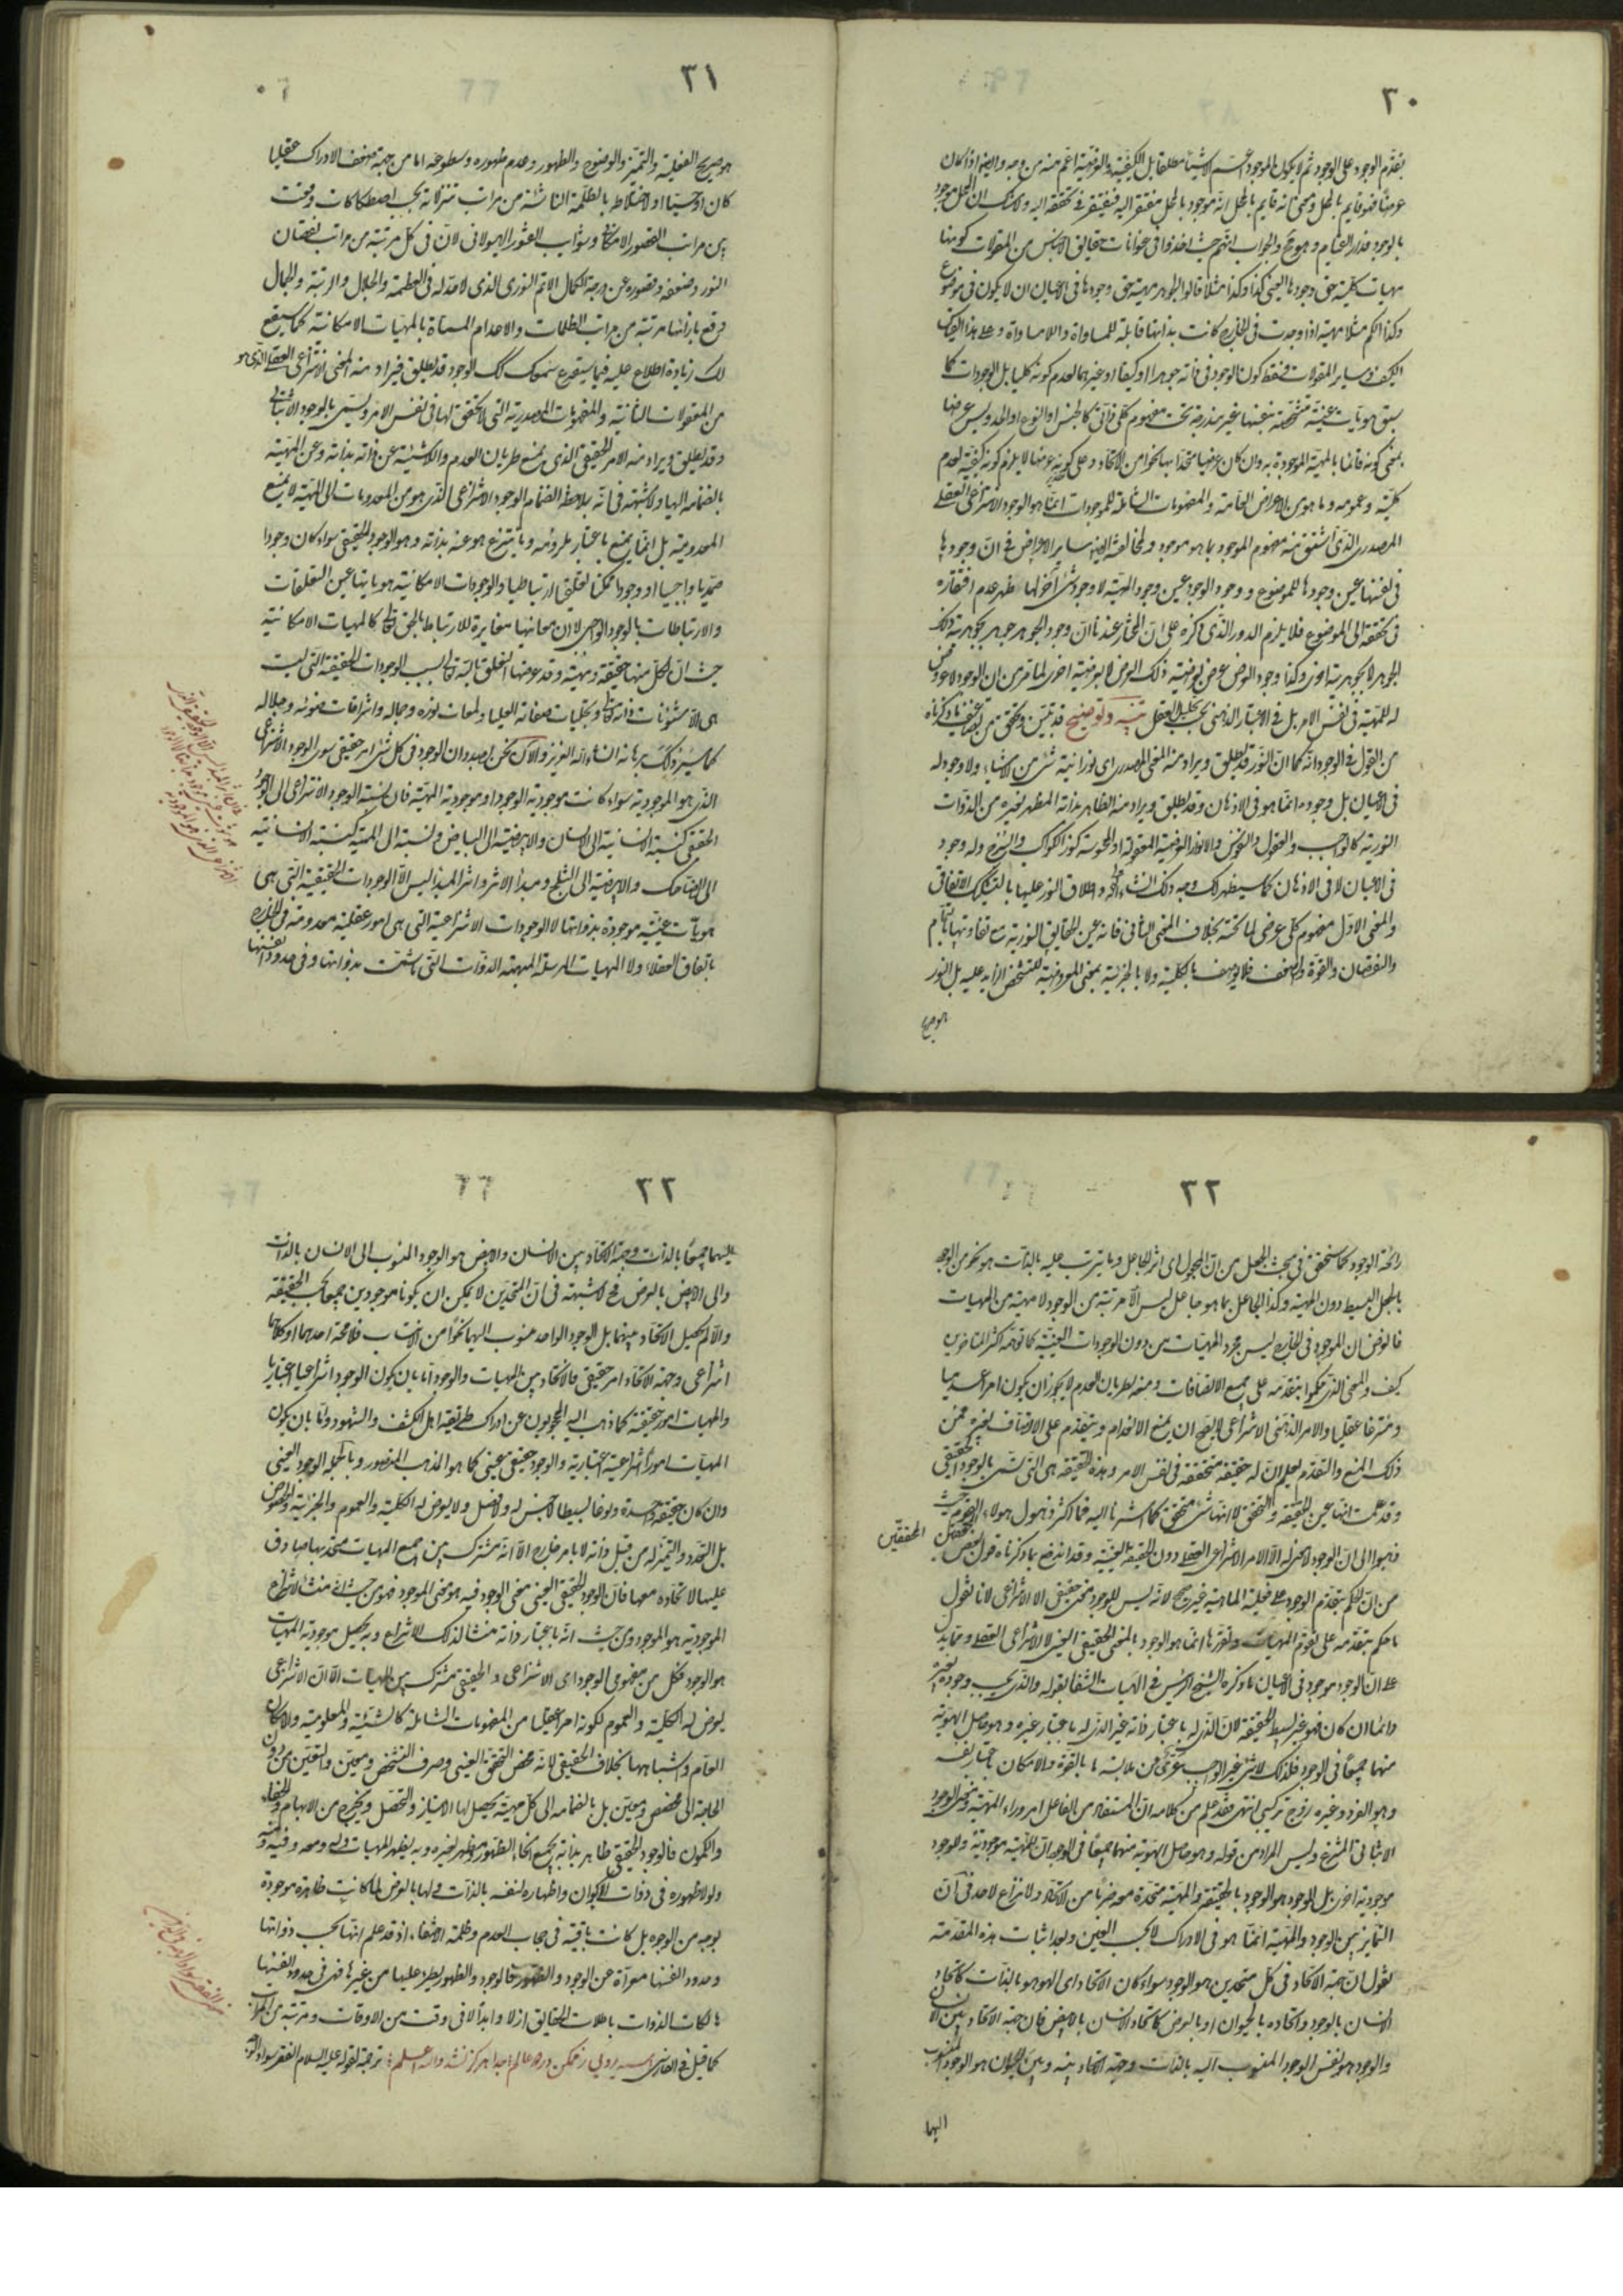 ٣٠
بتقدم الوجود على الوجود ثم لا يكون الموجود اعم الاشياء مطلقا بل الكيفية والعرضية اعم منه من وجه وايضا اذا كان
عرضا فهو قايم بالمحل ومعنى انه قايم بالمحل انه موجود بالمحل مفتقر اليه فيفتقر في تحققه اليه ولا شك ان المحل موجود
بالوجود فدار القيام وهو مح والجواب انهم حيث اخذوا في عنوانات حقايق الاجناس من المقولات كونها
مهيات كلية حق وجودها العيني كذا وكذا مثلا قالوا الجوهر مهية حق وجودها في الاعيان ان لا يكون في موضوع
وكذا الكم مثلا مهية اذا وجدت في الخارج كانت بذاتها قابلة للمساواة واللامساواة وعلى هذا القياس
الكيف وساير المقولات فسقط كون الوجود في ذاته جوهرا او كيفا او غيرهما لعدم كونه كليا بل الوجودات كما
سبق هويات عينية متشخصة بنفسها غير مندرجة تحت مفهوم كلي ذاتي كالجنس او النوع او الحد وليس عرضا
بمعنى كونه قائما بالمهية الموجودة به وان كان عرضيا متحدا بها نحوا من الاتحاد وعلى تقدير كونه عرضا لا يلزم كونه كيفية لعدم
كلية وعمومه وما هو من الاعراض العامة والمفهومات الشاملة للموجودات انما هو الوجود الانتزاعي العقلي
المصدري الذي اشتق منه مفهوم الموجود بما هو موجود ولمخالفته ايضا ساير الاعراض في ان وجودها
في نفسها عين وجودها للموضوع ووجود الوجود عين وجود المهية لا وجود شئ آخر لها ظهر عدم افتقاره
في تحققه الى الموضوع فلا يلزم الدور الذي ذكره على ان المختار عندنا ان وجود الجوهر جوهر بجوهرية ذلك
الجوهر لا بجوهرية اخرى وكذا وجود العرض عرض بعرضية ذلك العرض لا بعرضية اخرى لما مر من ان الوجود لا عروض
له للمهية في نفس الامر بل في الاعتبار الذهني بحسب تحليل العقل تنبيه وتوضيح قد تبين وتحقق من تضاعيف ما ذكرناه
من القول في الوجود انه كما ان النور قد يطلق ويراد منه المعنى المصدري اى نورانية شئ من الاشياء ولا وجود له
في الاعيان بل وجوده انما هو في الاذهان وقد يطلق ويراد منه الظاهر بذاته المظهر لغيره من الذوات
النورية كالواجب والعقول والنفوس والانوار العرضية المعقولة او المحسوسة كنور الكواكب والسرج وله وجود
في الاعيان لا في الاذهان كما سيظهر لك وجه ذلك انشاء الله واطلاق النور عليها بالتشكيك الاتفاقي
والمعنى الاول مفهوم كلي عرضي لما تحته بخلاف المعنى الثاني فانه عين الحقايق النورية مع تفاوتها بالتمام
والنقصان والقوة والضعف فلا يوصف بالكلية ولا بالجزئية بمعنى المعروضية للتشخص الزايد عليه بل النور
هو صريح
٣١
هو صريح الفعلية والتميز والوضوح والظهور وعدم ظهوره وسطوعه اما من جهة ضعف الادراك عقليا
كان او حسيا او لاختلاطه بالظلمة الناشئة من مراتب تنزلاته بحسب اصطكاكات وقعت
بين مراتب القصور الامكاني وشوايب الفتور الهيولاني لان في كل مرتبة من مراتب نقصان
النور وضعفه وقصوره عن درجة الكمال الاتم النوري الذي لا حد له في العظمة والجلال والزينة والجمال
وقع بازائها مرتبة من مراتب الظلمات والاعدام المسماة بالمهيات الامكانية كما سيقع
لك زيادة اطلاع عليه فيما سيقرع سمعك كك الوجود قد يطلق فيراد منه المعنى الانتزاعي العقلي الذي هو
من المعقولات الثانية والمفهومات المصدرية التي لا تحقق لها في نفس الامر ويسمى بالوجود الاثباتي
وقد يطلق ويراد منه الامر الحقيقي الذي يمنع طريان العدم واللاشيئية عن ذاته بذاته وعن المهية
بانضمامه اليها ولا شبهة في انه بملاحظة انضمام الوجود الانتزاعي الذي هو من المعدومات الى المهية لا يمنع
المعدومية بل انما يمنع باعتبار ملزومه وما ينتزع هو عنه بذاته وهو الوجود الحقيقي سواء كان وجودا
صمديا واجبيا او وجودا ممكنيا تعلقيا ارتباطيا والوجودات الامكانية هوياتها عين التعلقات
والارتباطات بالوجود الواجبي لا ان معانيها مغايرة للارتباط بالحق تعالى كالمهيات الامكانية
حيث ان لكل منها حقيقة ومهية وقد عرضها التعلق بالحق تعالى بسبب الوجودات الحقيقية التي ليست
هي الا شئونات ذاته تعالى وتجليات صفاته العليا ولمعات نوره وجماله واشراقات ضوئه وجلاله
كما سيرد لك برهانه انشاء الله العزيز والآن نحن بصدد ان الوجود في كل شئ امر حقيقي سوى الوجود الانتزاعي
الذي هو الموجودية سواء كانت موجودية الوجود او موجودية المهية فان نسبة الوجود الانتزاعي الى الوجود
الحقيقي كنسبة الانسانية الى الانسان والابيضية الى البياض ونسبته الى المهية كنسبة الانسانية
الى الضاحك والابيضية الى الثلج ومبدأ الاثر واثر المبدأ ليس الا الوجودات الحقيقية التي هي
هويات عينية موجودة بذواتها لا الوجودات الانتزاعية التي هي امور عقلية معدومة في الخارج
باتفاق العقلاء ولا المهيات المرسلة المبهمة الذوات التي ما شمت بذواتها وفي حدود انفسها
٣٢
رائحة الوجود كما سنحقق في مبحث الجعل من ان المجعول اى اثر الجاعل وما يترتب عليه بالذات هو نحو من الوجود
بالجعل البسيط دون المهية وكذا الجاعل بما هو جاعل ليس الا مرتبة من الوجود لا مهية من المهيات
فالغرض ان الموجود في الخارج ليس مجرد المهيات من دون الوجودات العينية كما توهمه اكثر المتاخرين
كيف والمعنى الذي حكموا بتقدمه على جميع الاتصافات ومنعه لطريان العدم لا يجوز ان يكون امرا عدميا
ومنتزعا عقليا والامر الذهني الانتزاعي لا يصح ان يمنع الانعدام ويتقدم على الاتصاف بغيره فمن
ذلك المنع والتقدم يعلم ان له حقيقة متحققة في نفس الامر وهذه الحقيقة هي التي تسمى بالوجود الحقيقي
وقد علمت انها عين الحقيقة والتحقق لا انها شئ متحقق كما اشرنا اليه فما اكثر ذهول هولاء القوم حيث
ذهبوا الى ان الوجود لا معنى له الا الامر الانتزاعي العقلي دون الحقيقة العينية وقد اندفع بما ذكرناه قول بعض المحققين
من ان الحكم بتقدم الوجود على فعلية الماهية غير صحيح لانه ليس للوجود معنى حقيقي الا الانتزاعي لانا نقول
ما حكم بتقدمه على تقوم المهيات وتقررها انما هو الوجود بالمعنى الحقيقي العيني لا الانتزاعي العقلي ومما يدل
على ان الوجود موجود في الاعيان ما ذكره الشيخ الرئيس في الهيات الشفا بقوله والذي يجب وجوده بغيره
دائما ان كان فهو غير بسيط الحقيقة لان الذي له باعتبار ذاته غير الذي له باعتبار غيره وهو حاصل الهوية
منهما جميعا في الوجود فلذلك لا شئ غير الواجب عرى عن ملابسة ما بالقوة والامكان باعتبار نفسه
وهو الفرد وغيره زوج تركيبي انتهى فقد علم من كلامه ان المستفاد من الفاعل امر وراء المهية ومعنى الوجود
الاثباتي المنتزع وليس المراد من قوله وهو حاصل الهوية منهما جميعا في الوجود ان للمهية موجودية وللوجود
موجودية اخرى بل الموجود هو الوجود بالحقيقة والمهية متحدة معه ضربا من الاتحاد ولا نزاع لاحد في ان
التمايز بين الوجود والمهية انما هو في الادراك لا بحسب العين وبعد اثبات هذه المقدمة
نقول ان جهة الاتحاد في كل متحدين هو الوجود سواء كان الاتحاد اى الهوهو بالذات كاتحاد
الانسان بالوجود واتحاده بالحيوان او بالعرض كاتحاد الانسان بالابيض فان جهة الاتحاد بين الانسان
والوجود هو نفس الوجود المنسوب اليه بالذات وجهة اتحاد بينه وبين الحيوان هو الوجود المنسوب
اليهما
٣٣
اليهما جميعا بالذات وجهة الاتحاد بين الانسان والابيض هو الوجود المنسوب الى الانسان بالذات
والى الابيض بالعرض فح لا شبهة في ان المتحدين لا يمكن ان يكونا موجودين جميعا بحسب الحقيقة
والا لم يحصل الاتحاد بينهما بل الوجود الواحد منسوب اليهما نحوا من الانتساب فلا محة احدهما او كلاهما
انتزاعي وجهة الاتحاد امر حقيقي فالاتحاد بين المهيات والوجود اما بان يكون الوجود انتزاعيا اعتباريا
والمهيات امور حقيقية كما ذهب اليه المحجوبون عن ادراك طريقة اهل الكشف والشهود واما بان يكون
المهيات امورا انتزاعية اعتبارية والوجود حقيقي عيني كما هو المذهب المنصور وبالجملة الوجود العيني
وان كان حقيقة واحدة ونوعا بسيطا لا جنس له ولا فصل ولا يعرض له الكلية والعموم والجزئية والخصوص
بل التعدد والتميز له من قبل ذاته لا بامر خارج الا انه مشترك بين جميع المهيات متحد بها صادق
عليها لاتحاده معها فان الوجود الحقيقي العيني معنى الوجود فيه هو معنى الموجود فهو من حيث انه منشأ لانتزاع
الموجودية هو الموجود ومن حيث انه باعتبار ذاته منشأ لذلك الانتزاع وبه يحصل موجودية المهيات
هو الوجود فكل من مفهومي الوجود اى الانتزاعي والحقيقي مشترك بين المهيات الا ان الانتزاعي
يعرض له الكلية والعموم لكونه امرا عقليا من المفهومات الشاملة كالشيئية والمعلومية والامكان
العام واشباهها بخلاف الحقيقي لانه محض التحقق العيني وصرف التشخص والتعين من دون
الحاجة الى مخصص ومعين بل بانضمامه الى كل مهية يحصل لها الامتياز والتحصل ويخرج من الابهام والخفاء
والكمون فالوجود الحقيقي ظاهر بذاته بجميع انحاء الظهور ومظهر لغيره وبه يظهر المهيات وله ومعه وفيه ومنه
ولولا ظهوره في ذوات الاكوان واظهاره لنفسه بالذات ولها بالعرض لما كانت ظاهرة موجودة
بوجه من الوجوه بل كانت باقية في حجاب العدم وظلمة الاختفاء اذ قد علم انها بحسب ذواتها
وحدود انفسها معراة عن الوجود والظهور فالوجود والظهور يطرء عليها من غيرها فهي في حدود انفسها
هالكات الذوات باطلات الحقايق ازلا وابدا لا في وقت من الاوقات ومرتبة من المراتب
كما قيل في الفارسي سيه رويي ز ممكن در دو عالم جدا هرگز نشد والله اعلم ترجمة لقوله عليه السلام الفقر سواد الوجه